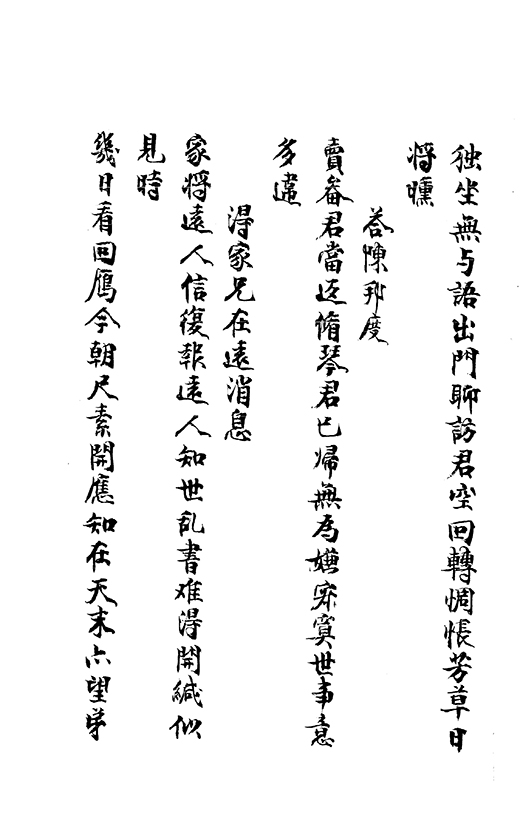 独坐無与語出門聊訪君空回轉惆悵芳草日
将曛
答陳邦度
賣畚君當返脩琴君已歸無為嫌寂寞世事意
多違
得家兄在遠消息
家将遠人信復報遠人知世乱書难得開緘似
見時
幾日看回鴈今朝尺素開應知在天末亦望弟